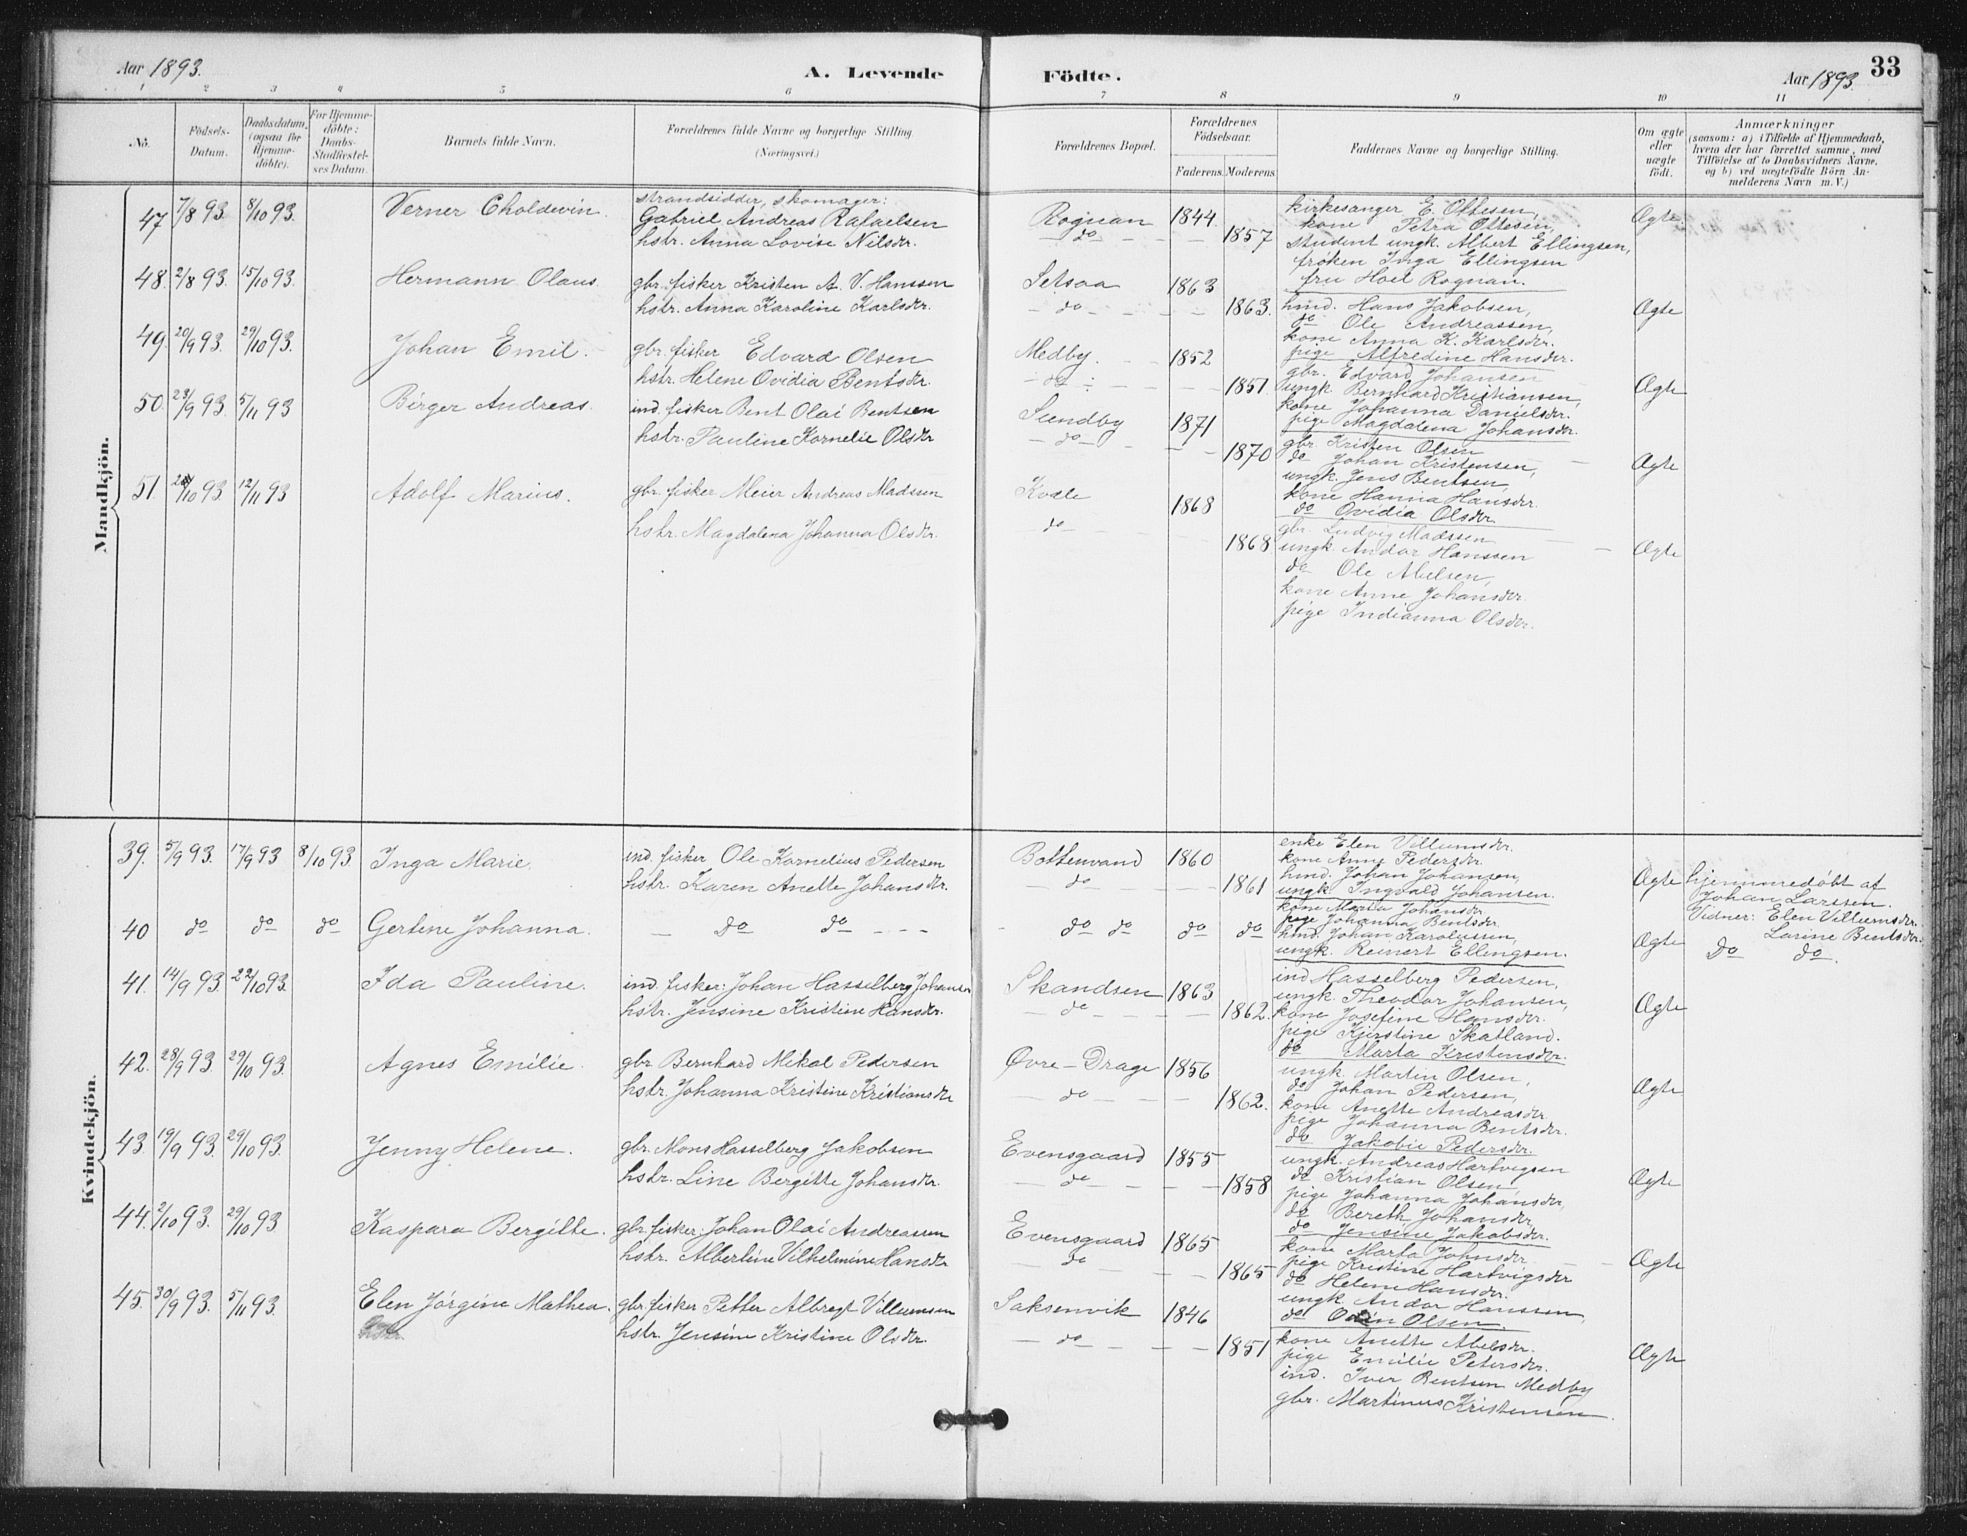 Aar 1893.
A. Levende
Födte.
Aar 1893.
33
1 2 3 4 5 6 7 8 9 10 11
No.
Födsels-Datum.
Daabsdatum, (ogsaa for Hjemme-döbte).
For Hjemme-döbte: Daabs-Stadfæstel-ses Datum.
Barnets fulde Navn.
Forældrenes fulde Navne og borgerlige Stilling
(Næringsvei.)
Forældrenes Bopæl.
Forældrenes Födselsaar.
Faderens. Moderens
Faddernes Navne og borgerlige Stilling.
Om ægte eller uægte födt.
Anmærkninger
(saasom: a) i Tilfælde af Hjemmedaab,
hvem der har forrettet samme, med
Tilföielse af to Daabsvidners Navne,
og b) ved uægtefödte Börn An-
melderens Navn m. V.)
Mandkjön.
47 7/8 93. 8/10 93. Verner Choldevin.
strandsidder, skomager:
Gabriel Andreas Rafaelsen
hstr. Anna Lovise Nilsdr.
Rognan 1844
do 1857
kirkesanger E. Ottesen,
kone Petra Ottesen,
student ungk. Albert Ellingsen,
frøken Inga Ellingsen
fru Hoel Rognan.
Ægte
48. 2/8 93. 15/10 93. Hermann Olaus.
gbr. fisker Kristen A. V. Hanssen
hstr. Anna Karoline Karlsdr.
Setsaa 1863
do 1863.
hmd. Hans Jakobsen,
do Ole Andreassen,
kone Anna K. Karlsdr.
pige Alfredine Hansdr.
Ægte
49. 20/9 93. 29/10 93. Johan Emil.
gbr. fisker Edvard Olsen
hstr. Helene Ovidia Bentsdr.
Medby. 1852
do 1851
gbr. Edvard Johansen
ungk. Bernhard Kristiansen,
kone Johanna Danielsdr.
pige Magdalena Johansdr.
Ægte
50. 23/9 93. 5/11 93 Birger Andreas.
ind. fisker Bent Olai Bentsen
hstr. Pauline Kornelie Olsdr
Sundby 1871
do 1870
gbr. Kristen Olsen
do Johan Kristensen,
ungk. Jens Bentsen,
kone Hanna Hansdr.
do Ovidia Olsdr.
Ægte
51. /10 93 12/11 93 Adolf Marius.
gbr. fisker Meier Andreas Madssen
hstr. Magdalena Johanna Olsdr.
Kvæle 1868
do 1868
gbr. Ludvig Madssen
ungk. Andor Hanssen
do Ole Abelsen,
kone Anne Johansdr.
pige Indianna Olsdr.
Ægte
Kvindekjön.
39. 5/9 93. 17/9 93 8/10 93 Inga Marie.
ind. fisker Ole Kornelius Pedersen
hstr. Karen Anette Johansdr.
Bottenvand 1860
do 1861
enke Elen Villumsdr.
kone Anne Pedersdr.
hmd. Johan Johansen,
ungk. Ingvald Johansen.
Ægte
hjemmedøbt af
Johan Larssen.
Vidner: Elen Villumsdr.
Larine Bentsdr.
40 do do do Gertine Johanna.
do do
do do do do
kone Marta Johansdr.
pige Johanna Bentsdr.
hmd. Johan Karolussen,
ungk. Reinert Ellingsen.
Ægte
do do.
41. 14/9 93 22/10 93. Ida Pauline.
ind. fisker: Johan Hasselberg Johansen
hstr. Jensine Kristine Hansdr.
Skandsen 1863
do 1862.
ind Hasselberg Pedersen,
ungk. Theodor Johansen,
kone Josefine Hansdr.
pige Kjerstine Skatland.
do Marta Kristensdr.
Ægte
42. 28/9 93. 29/10 93. Agnes Emilie.
gbr. Bernhard Mikal Pedersen
hstr. Johanna Kristine Kristiansdr
Øvre-Drage 1856
do 1862.
ungk. Martin Olsen,
do Johan Pedersen,
kone Anette Andreasdr.
pige Johanna Bentsdr.
do Jakobie Pedersdr.
Ægte
43. 19/9 93. 29/10 93. Jenny Helene.
gbr. Mons Hasselberg Jakobsen
hstr. Line Bergitte Johansdr.
Evensgaard 1855
do 1858
ungk. Andreas Hartvigsen
do Kristian Olsen,
pige Johanna Johansdr,
do Bereth Johansdr,
do Jensine Jakobsdr.
Ægte
44. 2/10 93. 29/10 93 Kaspara Bergitte.
gbr. fisker: Johan Olai Andreassen
hstr. Albertine Vilhelmine Hansdr
Evensgaard 1865
do 1865
kone Marta Johnsdr
pige Kristine Hartvigsdr
do Helene Hansdr.
ungk. Andor Hanssen,
do Odin Olsen.
Ægte
45. 30/9 93. 5/11 93. Elen Jørgine Mathea.
gbr. fisker Petter Albregt Villumsen
hstr. Jensine Kristine Olsdr.
Saksenvik 1846
do 1851
kone Anette Abelsdr.
pige Emilie Petersdr.
ind. Iver Bentsen Medby
gbr. Martinus Kristensen.
Ægte